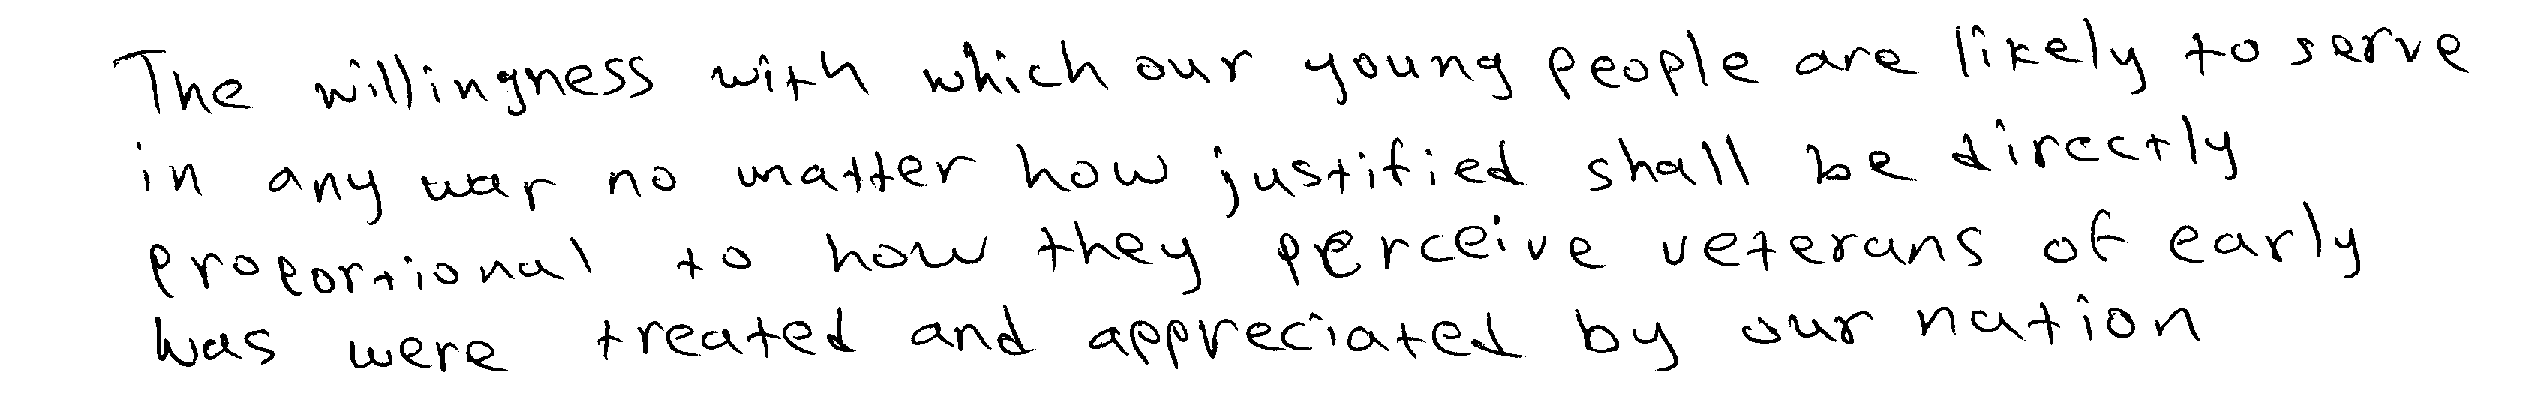 The willingness with which our young people are likely to serve
in any war no matter how justified shall be directly
proportional to how they perceive veterans of early
was were treated and appreciated by our nation